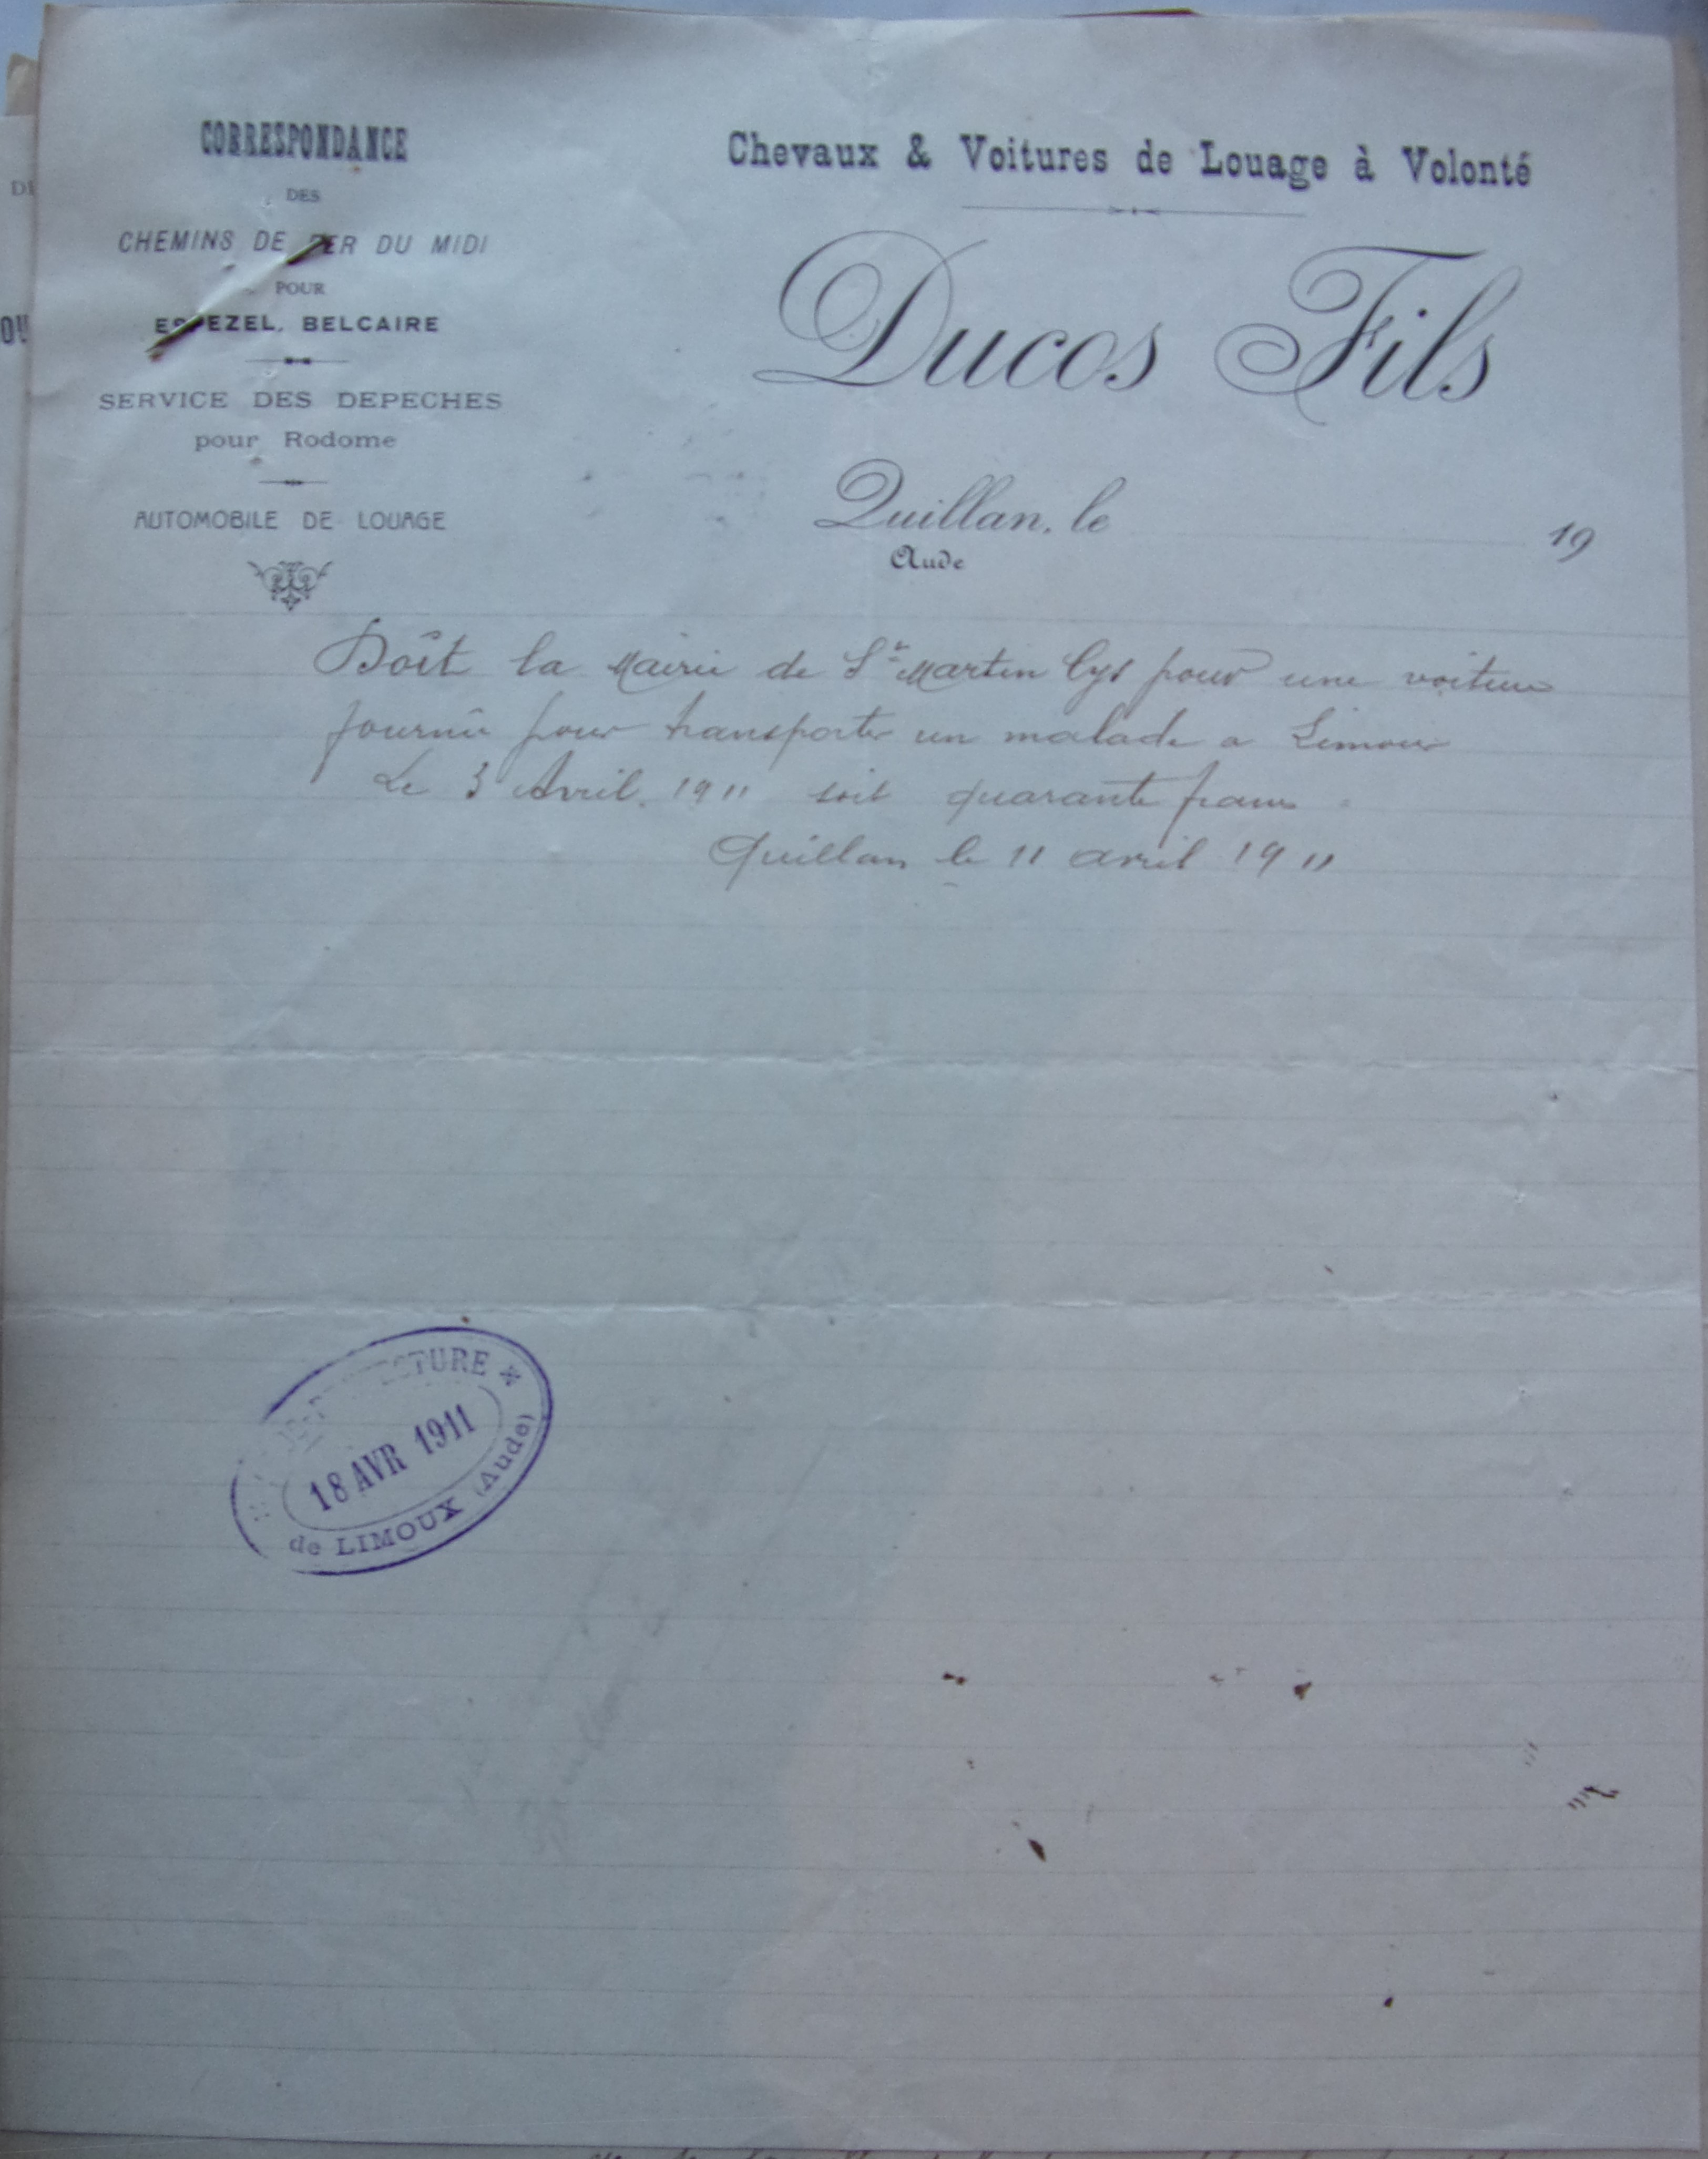 CORRESPONDANCE
DES
CHEMINS DE FER DU MIDI
POUR
ESPEZEL, BELCAIRE
SERVICE DES DEPECHES
pour Rodome
AUTOMOBILE DE LOUAGE
Chevaux & Voitures de Louage à Volonté
Ducos Fils
Quillan, le 19
Aude
Doit la Mairie de St Martin Lys pour une voiture
fournie pour transporter un malade a Limoux
Le 3 Avril 1911 soit quarante francs
Quillan le 11 avril 1911
18 AVR 1911
de LIMOUX (Aude)